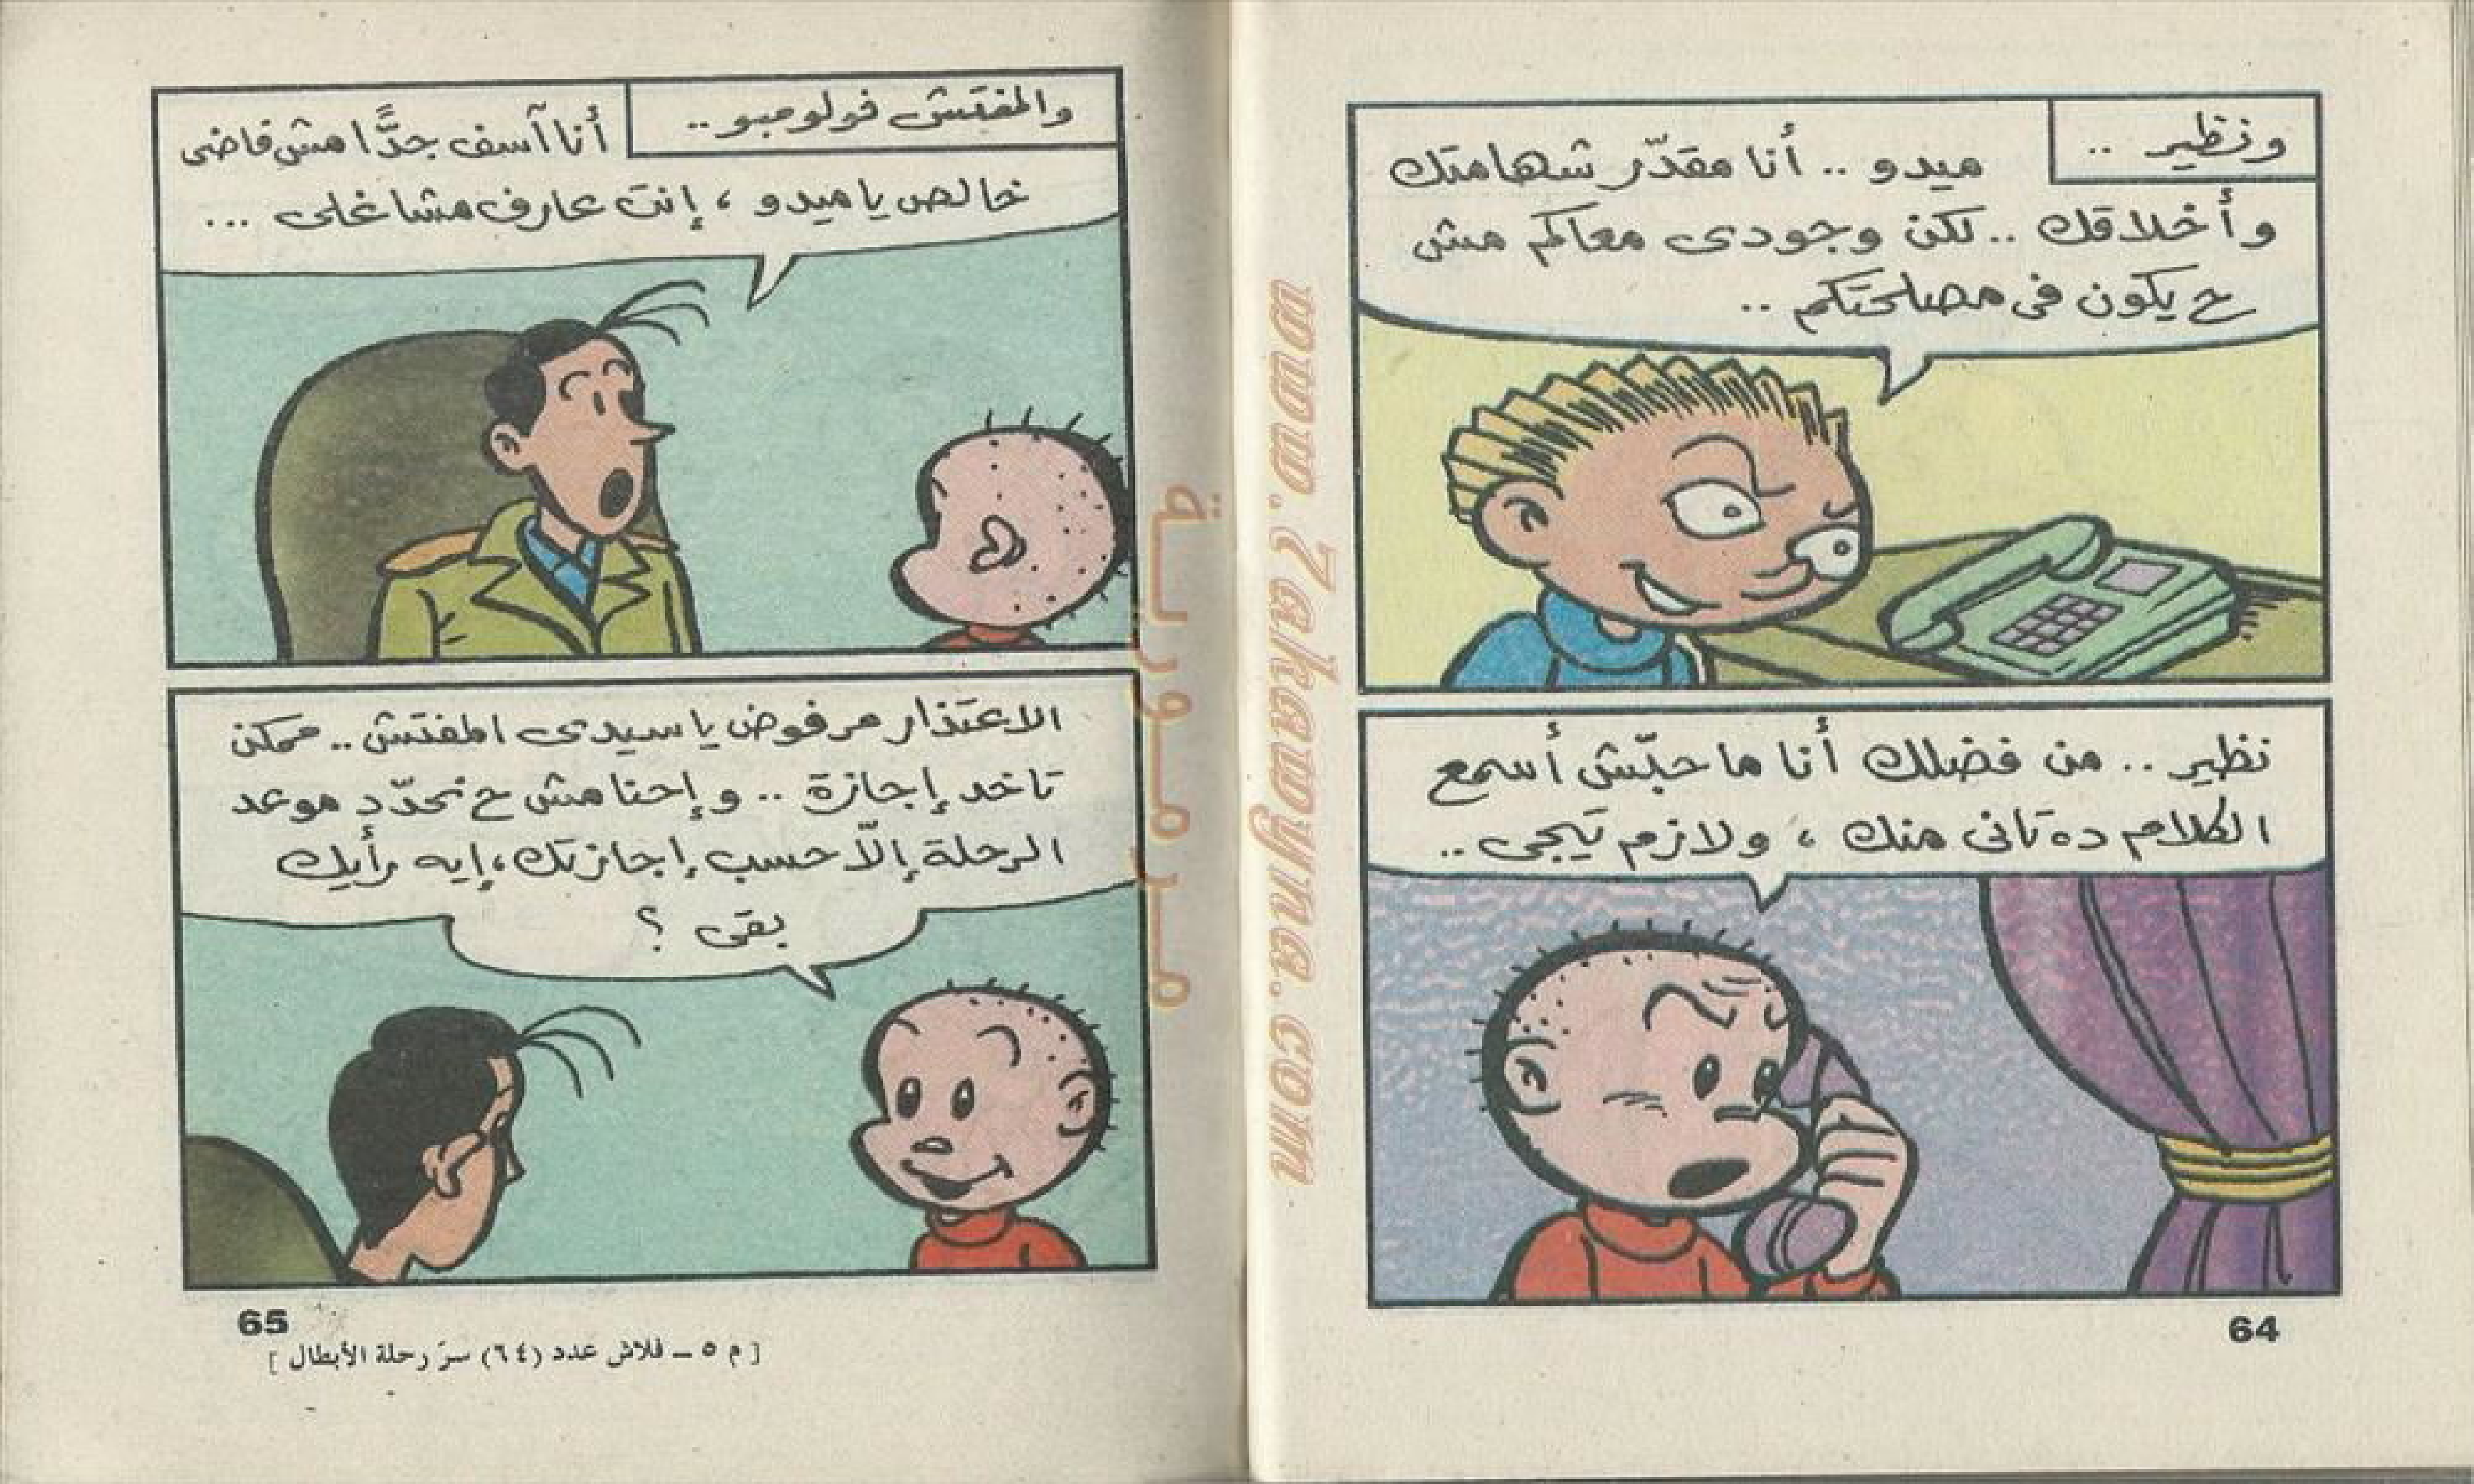 ونظير ..
ميدو .. أنا مقدّر شهامتك
وأخلاقك .. لكن وجودى معاكم مش
ح يكون فى مصلحتكم ..
نظير .. من فضلك أنا ما حبّش أسمع
الكلام ده تانى منك ، ولازم تيجى ..
64
والمفتش فولومبو ..
أنا آسف جدًّا مش فاضى
خالص يا ميدو ، إنت عارف مشاغلى ...
الاعتذار مرفوض يا سيدى المفتش .. ممكن
تاخد إجازة .. وإحنا مش ح نحدّد موعد
الرحلة إلاّ حسب إجازتك ، إيه رأيك
بقى ؟
65
[ م ٥ ــ فلاش عدد (٦٤) سرّ رحلة الأبطال ]
مرمورية
www.Zakawyna.com